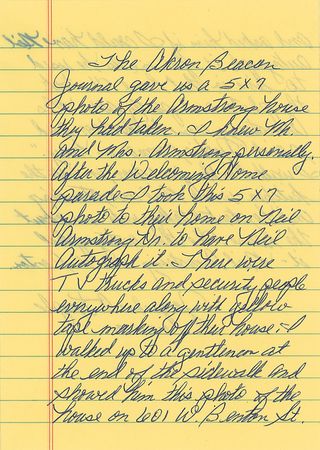 The Akron Beacon
Journal gave us a 5x7
photo of the Armstrong house
they had taken. I knew Mr.
and Mrs. Armstrong personally.
After the Welcoming Home
parade I took this 5x7
photo to their home on Neil
Armstrong Dr. to have Neil
Autograph it. There were
TV trucks and security people
everywhere along with yellow
tape marking off their house. I
walked up to a gentleman at
the end of the sidewalk and
showed him this photo of the
house on 601 W. Benton St.